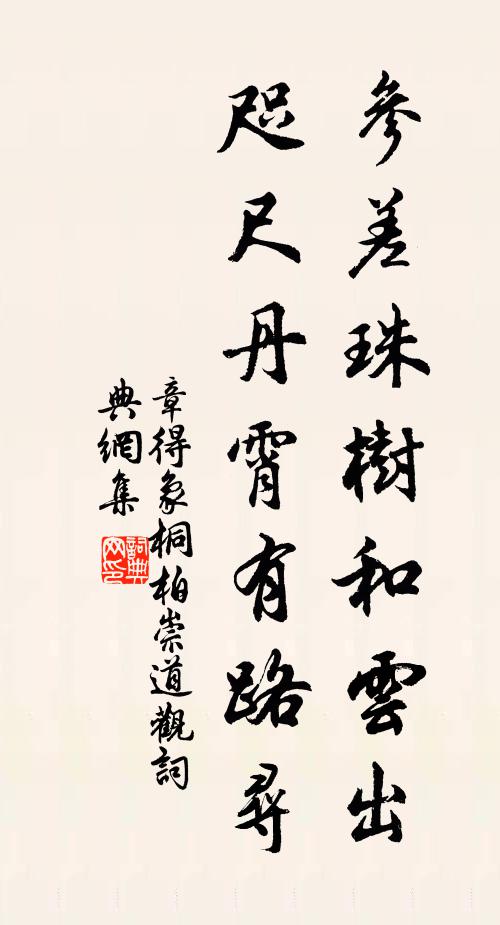 參差珠樹和雲出
咫尺丹霄有路尋
章得象桐柏崇道觀詞
典網集
詞典
网印